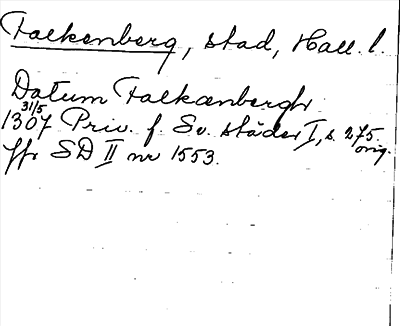 Falkenberg, stad, Hall. l.
Datum Falkænbergh
1307 31/5 Priv. f. Sv. städer I, s. 275.
orig.
Jfr SD II nr 1553.